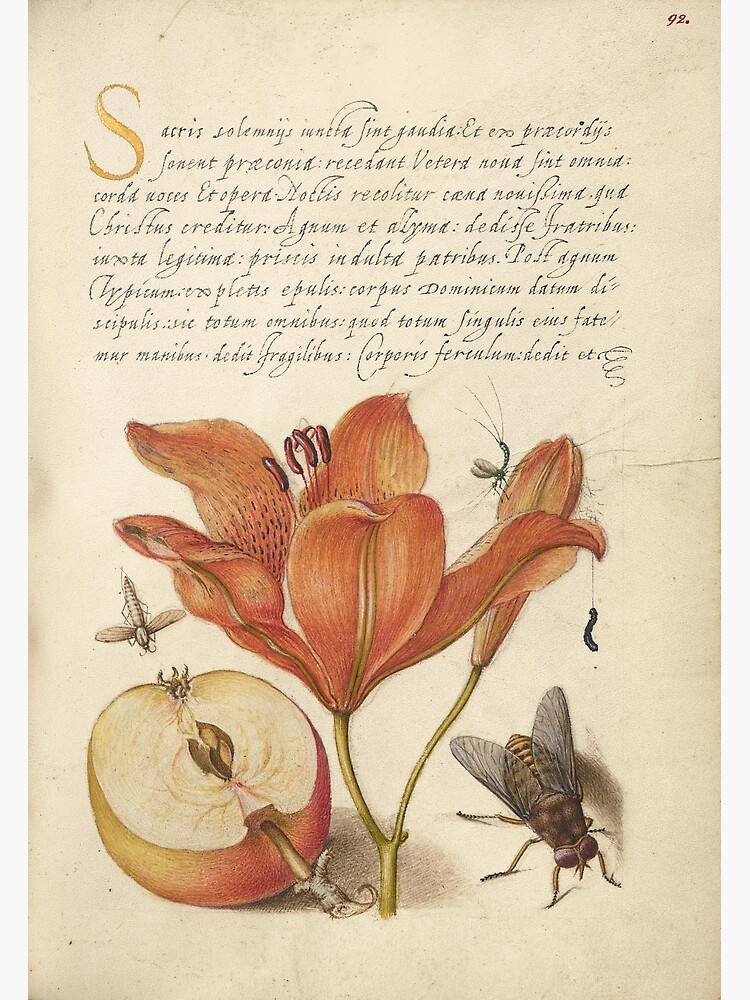 92.
Sacris solemnijs iuncta sint gaudia: Et ex præcordijs
sonent præconia: recedant Vetera noua sint omnia:
corda uoces Et opera. Noctis recolitur cæna nouissima. qua
Christus creditur. Agnum et azyma: dedisse fratribus:
iuxta legitima: priscis indulta patribus. Post agnum
Typicum: expletis epulis: corpus Dominicum datum di=
scipulis: sic totum omnibus: quod totum singulis eius fate=
mur manibus. dedit fragilibus: Corporis ferculum: dedit et